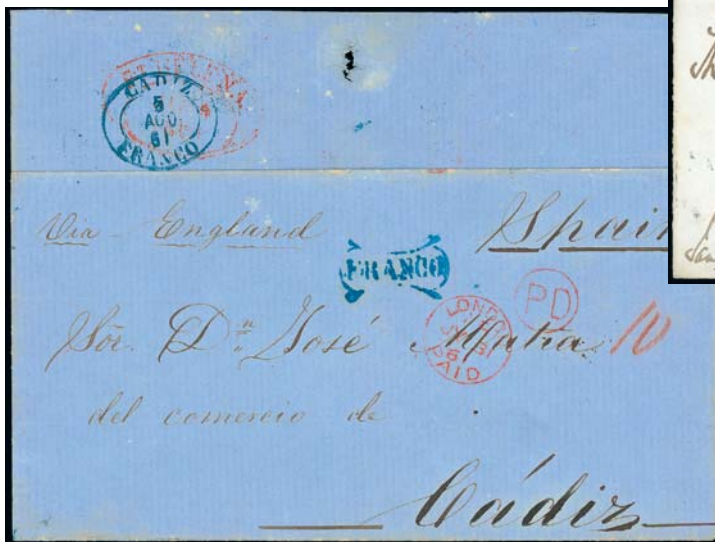 CADIZ
5
AGO.
61
FRANCO
Via England
Spain
FRANCO
PD
LOND
PAID
10
Sōr. Dⁿ José
del comercio de
Cádiz